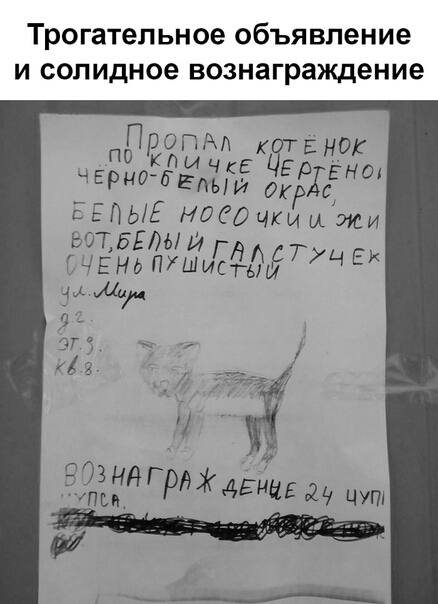 Трогательное объявление
и солидное вознаграждение
ПРОПАЛ КОТЁНОК
ПО КЛИЧКЕ ЧЕРТЁНО
ЧЁРНО-БЕЛЫЙ ОКРАС,
БЕЛЫЕ НОСОЧКИ И ЖИ
ВОТ, БЕЛЫЙ ГАЛСТУЧЕК
ОЧЕНЬ ПУШИСТЫЙ
ул. Мира
д. 2.
ЭТ. 3.
Кв. 8.
ВОЗНАГРАЖДЕНИЕ 24 ЧУП
ЧУПСА.